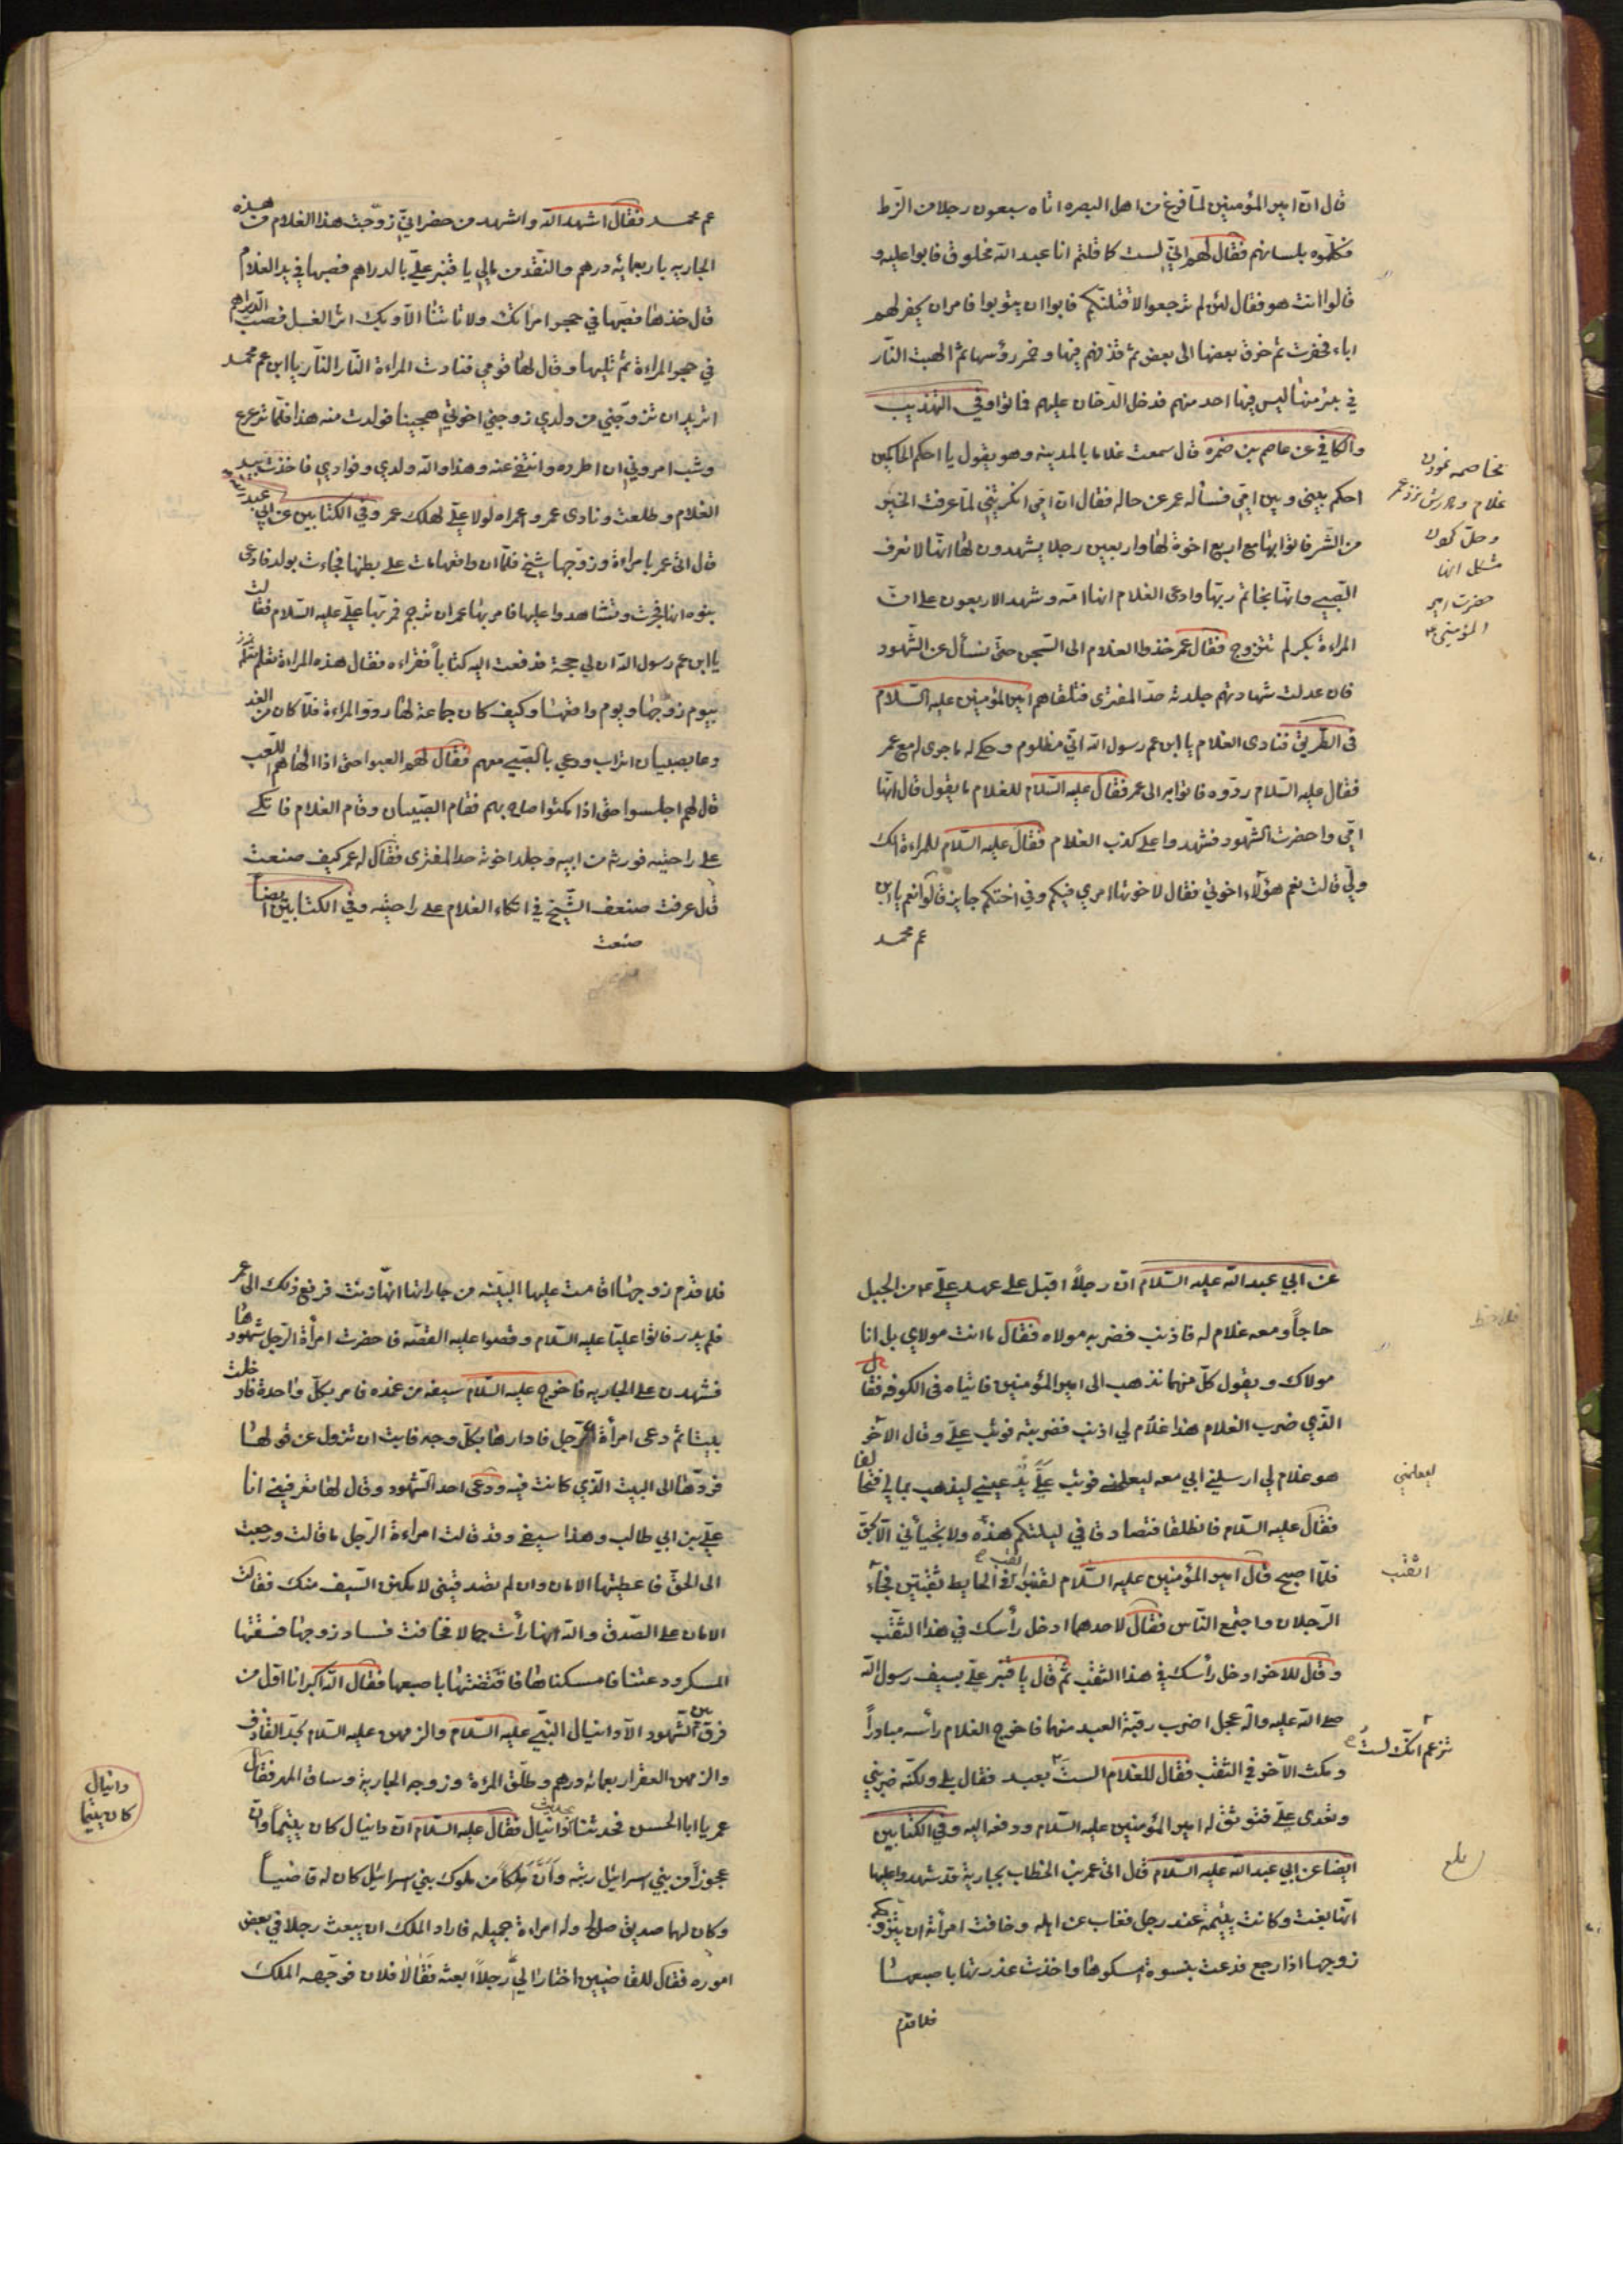 قال ان امير المؤمنين لمّا فرغ من اهل البصره اتاه سبعون رجلا من الزّط
فكلّموه بلسانهم فقال لهم انّي لست كما قلتم انا عبد الله مخلوق فابوا عليه و
قالوا انت هو فقال لئن لم ترجعوا لاقتلنّكم فابوا ان يتوبوا فامر ان يحفر لهم
اباء فحفرت ثم خرق بعضها الى بعض ثم قذفهم فيها و خمر رؤسها ثم الهبت النّار
في بئر منها ليس فيها احد منهم فدخل الدخان عليهم فماتوا وفي التهذيب
والكافي عن عاصم بن ضمره قال سمعت غلاما بالمدينه وهو يقول يا احكم الحاكمين
احكم بيني و بين امّي فسأله عمر عن حاله فقال ان امّي انكرتني لمّا عرفت الخير
من الشر فاتوا بها مع اربع اخوة لها و اربعين رجلا يشهدون لها انّها لا تعرف
الصّبي و انّها بخاتم ربّها وادعى الغلام انها امّه و شهد الاربعون على انّ
المراءة بكر لم تتزوج فقال عمر خذوا الغلام الى السّجن حتى نسأل عن الشّهود
فان عدلت شهادتهم جلدته حدّ المفترى فتلقاهم امير المؤمنين عليه السّلام
فى الطّريق فنادى الغلام يا ابن عم رسول الله انّي مظلوم و حكى له ما جرى له مع عمر
فقال عليه السّلام ردّوه فاتوا به الى عمر فقال عليه السّلام للغلام ما يقول قال انّها
امّي و احضرت الشّهود فشهدوا على كذب الغلام فقال عليه السّلام للمراءة الك
وليّ قالت نعم هؤلاء اخوتي فقال لاخوتها امري فيكم و في اختكم جايز قالوا نعم يا ابن
عم محمد
مخاصمه نمودن
غلام و مادرش نزد عمر
و حلّ نمودن
مشكل انها
حضرت امير
المؤمنين ع
عم محمد فقال اشهد الله و اشهد من حضر انّي زوّجت هذا الغلام من هذه
الجاريه باربعمايه درهم والنّقد من مالي يا قنبر عليّ بالدراهم فصبها في يد الغلام
قال خذها فصبّها في حجر امرأتك ولا تأتنا الّا و بك اثر الغسل فصب الدّراهم
في حجر المراءة ثم تلببها و قال لها قومي فنادت المراءة النّار النّار يا ابن عم محمد
اتريد ان تزوّجني من ولدي زوجني اخوتي هجينا فولدت منه هذا فلمّا ترعرع
و شب امروني ان اطرده و انتفي عنه و هذا والله ولدي و فوادي فاخذت بيد
الغلام و طلعت و نادى عمر و اعمراه لولا علي لهلك عمر و في الكتابين عن ابي عبد الله
قال اتى عمر بامراءة و زوّجها شيخ فلمّا ان واقعها مات على بطنها فجاءت بولد فادعى
بنوه انها فجرت و تشاهدوا عليها فامر بها عمر ان ترجم فمر بها علي عليه السّلام فقالت
يا ابن عم رسول الله ان لي حجة فدفعت اليه كتاباً فقراءه فقال هذه المراءة تعلمكم
بيوم زوّجها و يوم واقعها و كيف كان جماعه لها ردوا المراءة فلمّا كان من الغد
دعا بصبيان اتراب و دعي بالصّبي معهم فقال لهم العبوا حتى اذا الهاهم اللّعب
قال لهم اجلسوا حتى اذا تمكنوا صاح بهم فقام الصّبيان و قام الغلام فاتكى
على راحتيه فورثه من ابيه و جلد اخوته حد المفترى فقال له عمر كيف صنعت
قال عرفت ضعف الشّيخ في اتكاء الغلام على راحتيه و في الكتابين ايضاً
صنعت
عن ابي عبد الله عليه السّلام انّ رجلاً اقبل على عهد عليّ ع من الجبل
حاجاً و معه غلام له فاذنب فضربه مولاه فقال ما انت مولاي بل انا
مولاك و يقول كلّ منهما نذهب الى امير المؤمنين فاتياه فى الكوفه فقال
الّذي ضرب الغلام هذا غلام لي اذنب فضربته فوثب عليّ و قال الآخر
هو غلام لي ارسلني ابي معه ليعلمني فوثب عليّ يدعيني ليذهب بمالي فتحالفا
فقال عليه السّلام فانطلقا فتصادقا في ليلتكم هذه ولا تجيآني الّا بحق
فلمّا اصبح قال امير المؤمنين عليه السّلام لقنبر اثقب في الحايط ثقبتين فجآء
الرّجلان و اجتمع النّاس فقال لاحدهما ادخل رأسك في هذا الثّقب
و قال للاخر ادخل رأسك في هذا الثقب ثم قال يا قنبر عليّ بسيف رسول الله
صلى الله عليه واله عجل اضرب رقبة العبد منهما فاخرج الغلام رأسه مبادراً
و مكث الآخر في الثقب فقال للغلام الست بعبد فقال بلى ولكنّه ضربني
و تعدى عليّ فتوثق له امير المؤمنين عليه السّلام و دفعه اليه و في الكتابين
ايضا عن ابي عبد الله عليه السّلام قال اتى عمر بن الخطاب بجارية قد شهدوا عليها
انّها بغت و كانت يتيمة عند رجل فغاب عن اهله و خافت امرأته ان يتزوّجها
زوجها اذا رجع فدعت بنسوة امسكوها و اخذت عذرتها باصبعها
فلما قدم
ليعلمني
اثقب
تزعم انّك لست
بلغ
فلما قدم زوجها اقامت عليها البيّنه من جاراتها انّها زنت فرفع ذلك الى عمر
فلم يدر فاتوا عليّا عليه السّلام و قصوا عليه القصّه فاحضرت امرأة الرّجل شهودها
فشهدن على الجاريه فاخرج عليه السّلام سيفه من غمده فامر بكلّ واحدة فادخلت
بيتا ثم دعى امرأة الرّجل فادارها بكلّ وجه فابت ان تزول عن قولها
فردّها الى البيت الّذي كانت فيه و دعى احد الشّهود و قال لها تعرفيني انا
عليّ بن ابي طالب و هذا سيفي و قد قالت امراءة الرّجل ما قالت و رجعت
الى الحقّ فاعطيتها الامان و ان لم تصدقيني لامكنن السّيف منك فقالت
الامان على الصّدق والله انها رأت جمالا فخافت فساد زوجها فسقتها
المسكر و دعتنا فامسكناها فاقتضّتها باصبعها فقال الله اكبر انا اوّل من
فرق بين الشّهود الّا دانيال النّبيّ عليه السّلام و الزمهن عليه السّلام بحدّ القاذف
و الزمهن العقر اربعمائه درهم و طلّق المرءة و زوجه الجارية و ساق المهر فقال
عمر يا ابا الحسن فحدثنا بحديث دانيال فقال عليه السّلام انّ دانيال كان يتيماً و انّ
عجوزاً من بني اسرائيل ربته و انّ ملكاً من ملوك بني اسرائيل كان له قاضيا
و كان لهما صديق صالح و له امراءة جميله فاراد الملك ان يبعث رجلا في بعض
اموره فقال للقاضيين اختارا لي رجلاً ابعثه فقالا فلان فوجّهه الملك
دانيال
كان يتيما